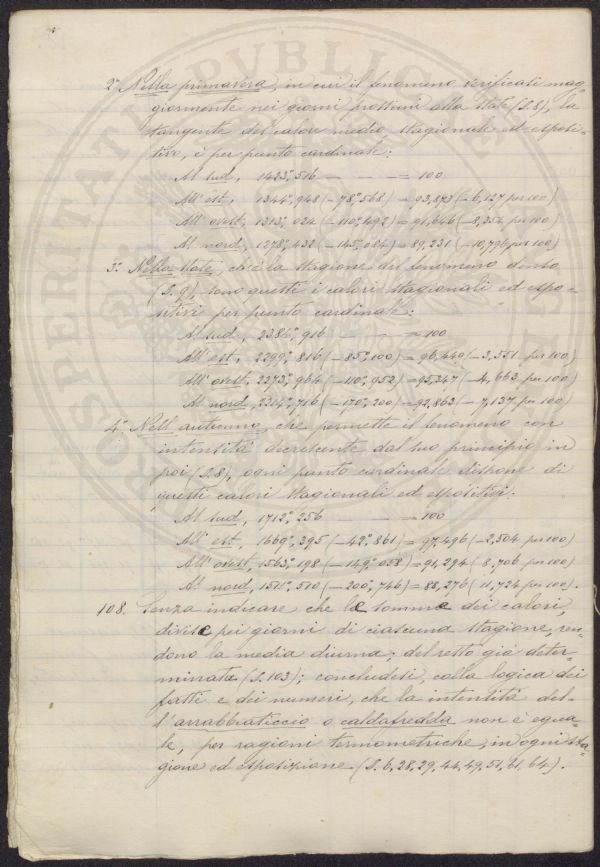 2.° Nella primavera, in cui il fenomeno verificasi mag-
giormente nei giorni prossimi alla state (S. 8), la
tangente del calore medio stagionale ed esposi-
tivo, è per punto cardinale:
Al sud, 1423°, 516 — — — = 100
All'est, 1344°, 948 (— 78°, 568) = 93,873 (— 6,127 per 100)
All'ovest, 1313°, 024 (— 110°, 492) = 91,646 (— 8,354 per 100)
Al nord, 1278°, 432 (— 145°, 084) = 89,231 (— 10,794 per 100)
3.° Nella state, ch'è la stagione del fenomeno denso
(S. 9), sono questi i calori stagionali ed espo-
sitivi per punto cardinale:
Al sud, 2384°, 916 — — = 100
All'est, 2299°, 816 (— 85°, 100) = 96,449 (— 3,551 per 100)
All'ovest, 2273°, 964 (— 110°, 952) = 95,347 (— 4,663 per 100)
Al nord, 2214°, 716 (— 170°, 200) = 92,863 — 7,137 per 100)
4.° Nell'autunno, che permette il fenomeno con
intensità decrescente dal suo principio in
poi (S. 8), ogni punto cardinale dispone di
questi calori stagionali ed espositivi:
Al sud, 1712°, 256 — — — = 100
All'est, 1669°, 395 (— 42°, 861) = 97,496 (— 2,504 per 100)
All'ovest, 1563°, 198 (— 149°, 058) = 91,294 (8,706 per 100)
Al nord, 1511°, 510 (— 200°, 746) = 88,276 (11,724 per 100).
108. Senza indicare che le somme dei calori,
divise pei giorni di ciascuna stagione, ren-
dono la media diurna; del resto già deter-
minata (S. 103); concludesi, colla logica dei
fatti e dei numeri, che la intensità del-
l'arrabbiaticcio o caldafredda non è egua-
le, per ragioni termometriche, in ogni sta-
gione ed esposizione. (S. 6, 28, 29, 44, 49, 51, 61, 64).
PROSPERITATI PVBLICAE